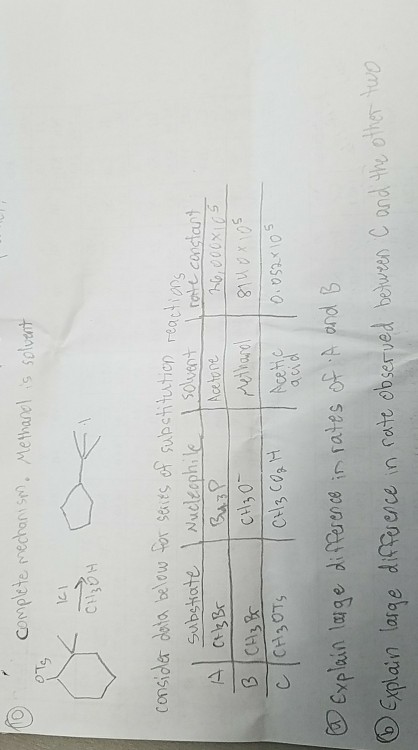 10 Complete mechanism. Methanol is solvent
OTs
KI
CH3OH
I
consider data below for series of substitution reactions
Substrate Nucleophile solvent rate constant
A CH3Br Bu3P Acetone 26,000x10^5
B CH3Br CH3O- Methanol 8140x10^5
C CH3OTs CH3CO2H Acetic acid 0.052x10^5
a Explain large difference in rates of A and B
b Explain large difference in rate observed between C and the other two